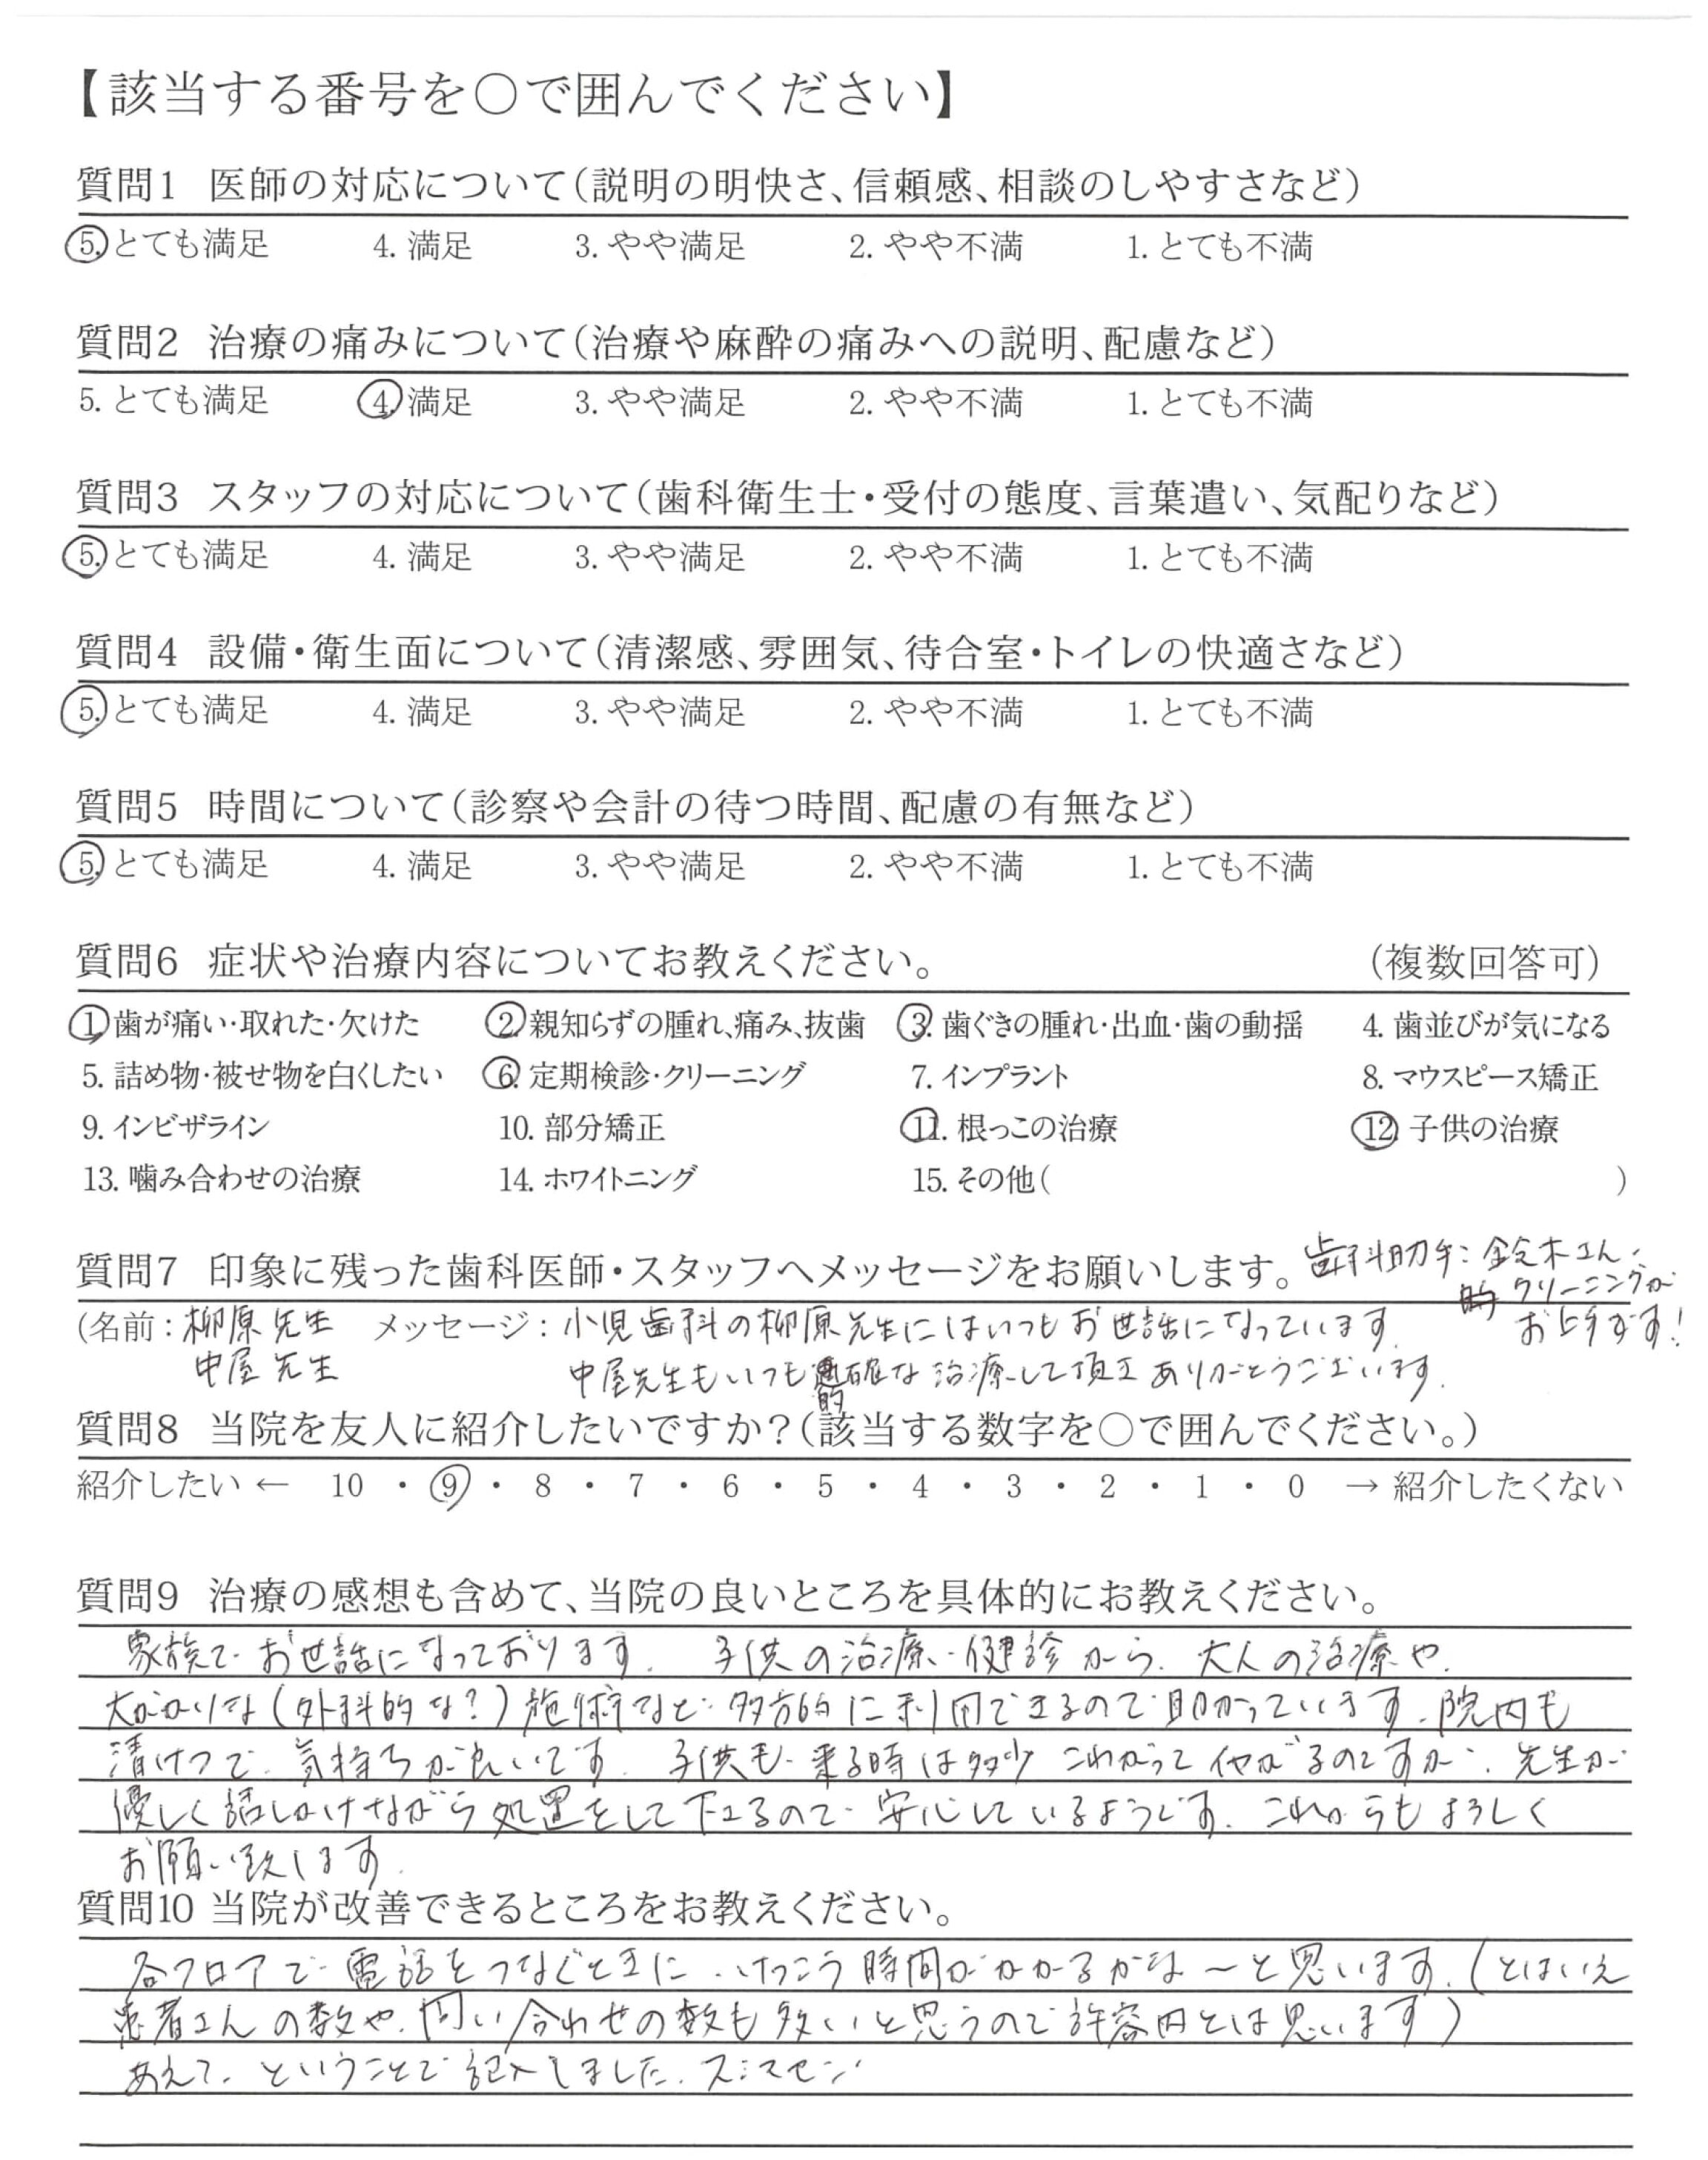 【該当する番号を○で囲んでください】
質問1 医師の対応について(説明の明快さ、信頼感、相談のしやすさなど)
5. とても満足 4. 満足 3. やや満足 2. やや不満 1. とても不満
質問2 治療の痛みについて(治療や麻酔の痛みへの説明、配慮など)
5. とても満足 4. 満足 3. やや満足 2. やや不満 1. とても不満
質問3 スタッフの対応について(歯科衛生士・受付の態度、言葉遣い、気配りなど)
5. とても満足 4. 満足 3. やや満足 2. やや不満 1. とても不満
質問4 設備・衛生面について(清潔感、雰囲気、待合室・トイレの快適さなど)
5. とても満足 4. 満足 3. やや満足 2. やや不満 1. とても不満
質問5 時間について(診察や会計の待つ時間、配慮の有無など)
5. とても満足 4. 満足 3. やや満足 2. やや不満 1. とても不満
質問6 症状や治療内容についてお教えください。 (複数回答可)
1. 歯が痛い・取れた・欠けた 2. 親知らずの腫れ、痛み、抜歯 3. 歯ぐきの腫れ・出血・歯の動揺 4. 歯並びが気になる
5. 詰め物・被せ物を白くしたい 6. 定期検診・クリーニング 7. インプラント 8. マウスピース矯正
9. インビザライン 10. 部分矯正 11. 根っこの治療 12. 子供の治療
13. 噛み合わせの治療 14. ホワイトニング 15. その他( )
質問7 印象に残った歯科医師・スタッフへメッセージをお願いします。
歯科助手: 鈴木さん.
クリーニングが
お上手です!
(名前: 柳原先生 メッセージ: 小児歯科の柳原先生にはいつもお世話になっています.
中屋先生 中屋先生もいつも的確な治療して頂きありがとうございます.
質問8 当院を友人に紹介したいですか?(該当する数字を○で囲んでください。)
紹介したい ← 10 ・ 9 ・ 8 ・ 7 ・ 6 ・ 5 ・ 4 ・ 3 ・ 2 ・ 1 ・ 0 → 紹介したくない
質問9 治療の感想も含めて、当院の良いところを具体的にお教えください。
家族で お世話になっております. 子供の治療・健診から. 大人の治療や.
大がかりな(外科的な?)施術など 多方的に利用できるので助かっています. 院内も
清けつで. 気持ちが良いです. 子供も 来る時は多少 こわがって イヤがるのですが. 先生が
優しく話しかけながら処置をして下さるので 安心しているようです. これからもよろしく
お願い致します.
質問10 当院が改善できるところをお教えください。
各フロアで電話をつなぐときに. けっこう時間がかかるかな〜と思います. (とはいえ
患者さんの数や. 問い合わせの数も多いと思うので許容内とは思います)
あえて. ということで記入しました. スミマセン